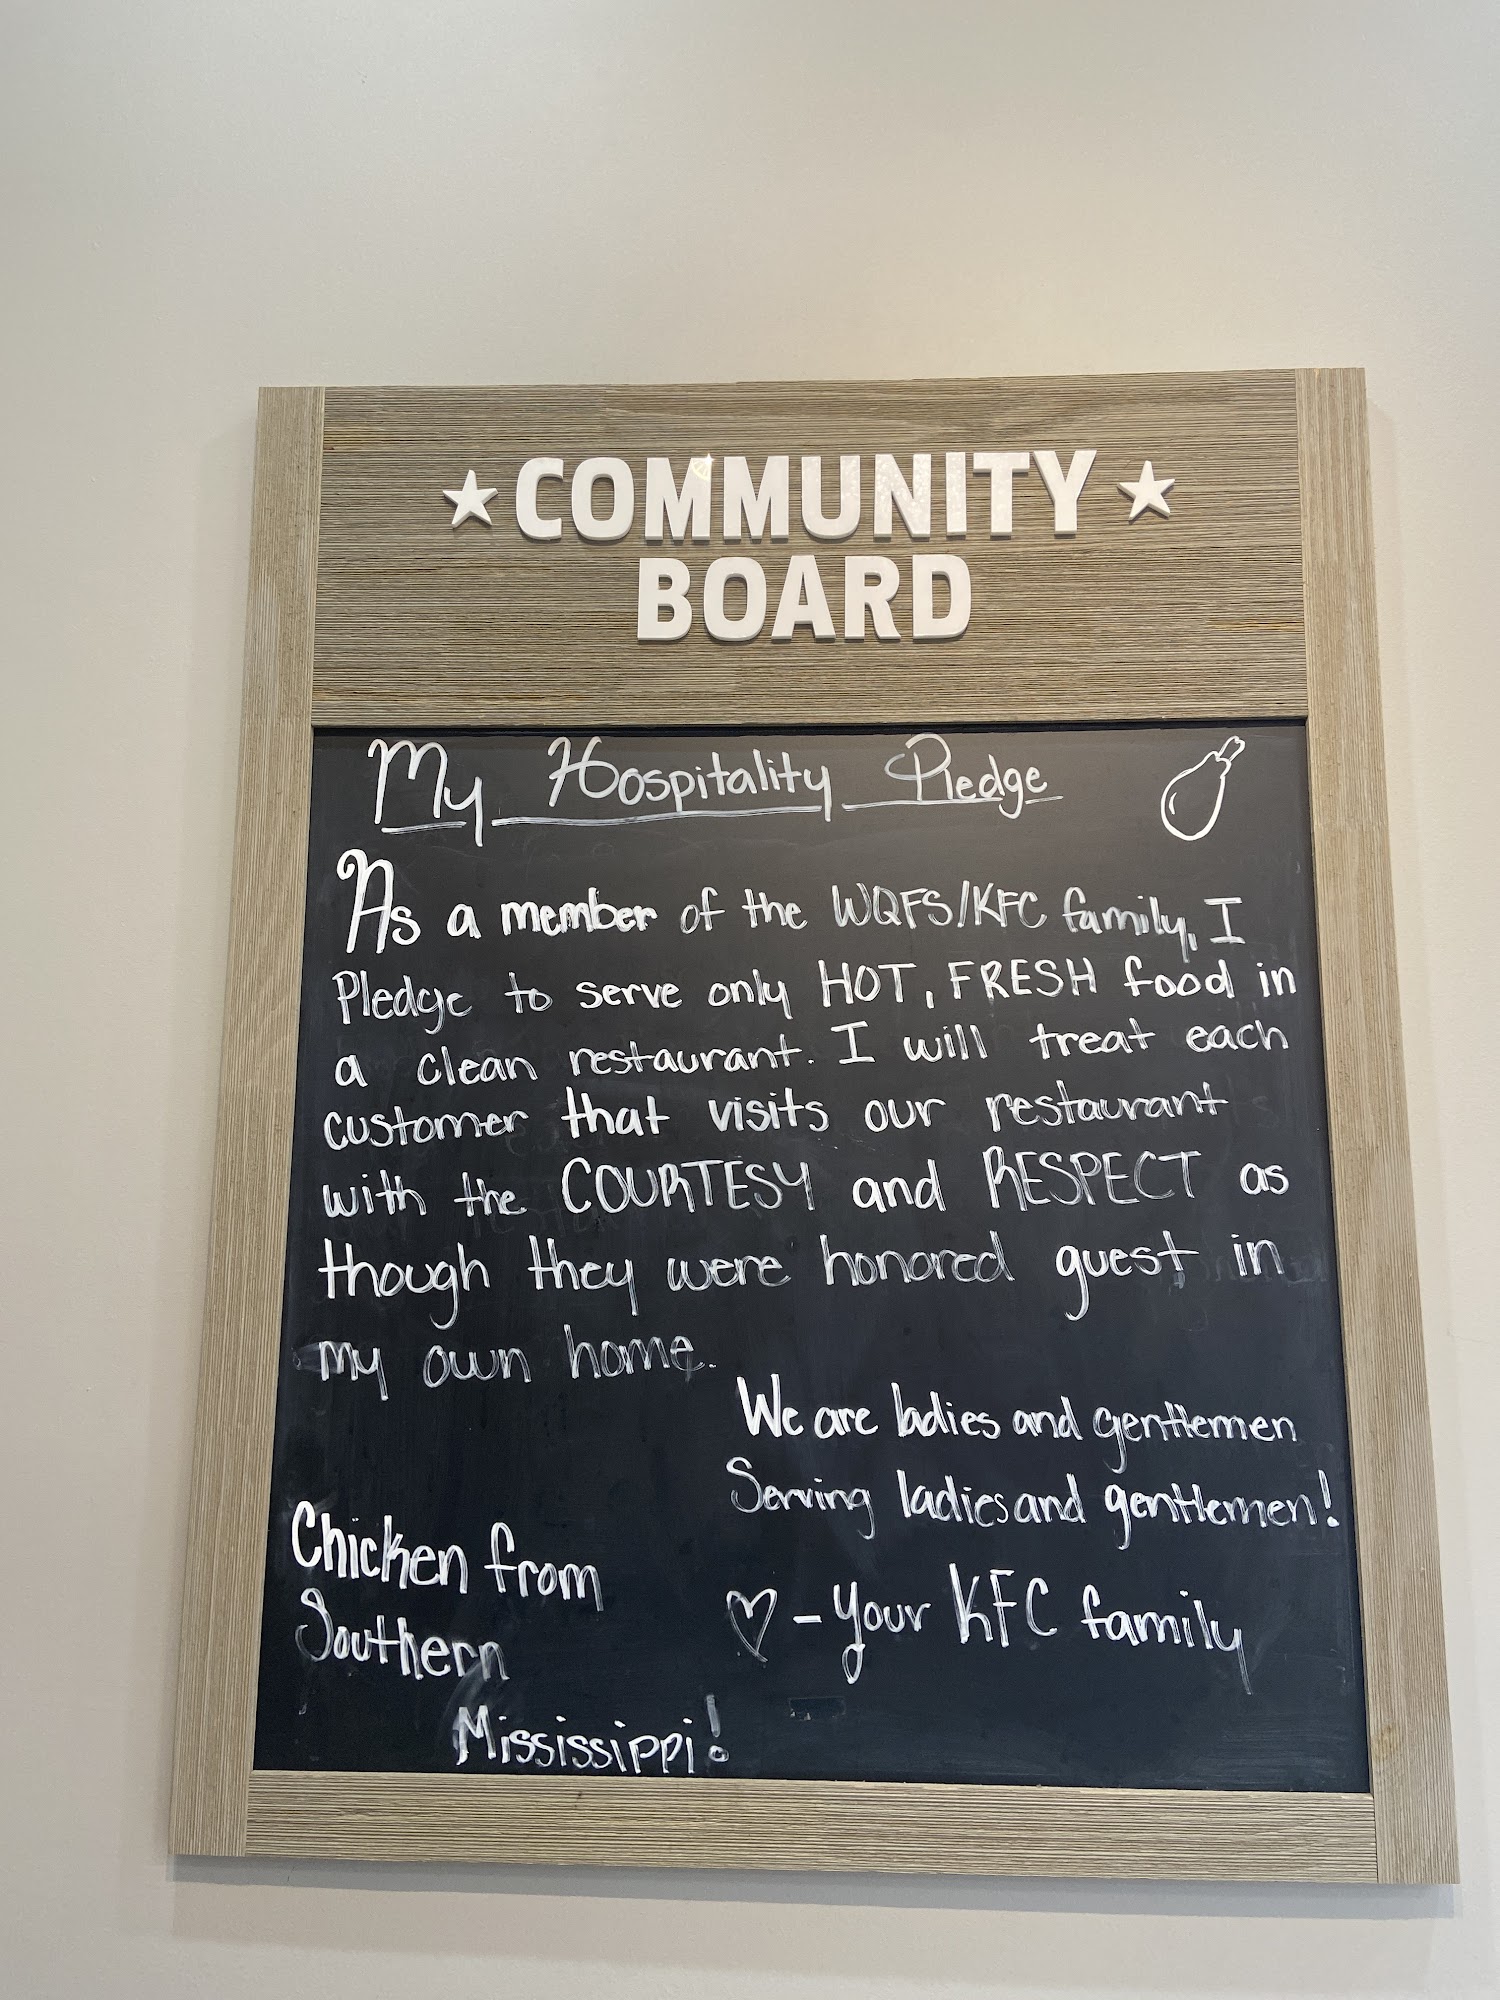 COMMUNITY
BOARD
My Hospitality Pledge
As a member of the WQFS/KFC family, I
Pledge to serve only HOT, FRESH food in
a clean restaurant. I will treat each
customer that visits our restaurant
with the COURTESY and RESPECT as
though they were honored guest in
my own home.
We are ladies and gentlemen
Serving ladies and gentlemen!
Chicken from
Southern
Mississippi!
♡ - Your KFC family